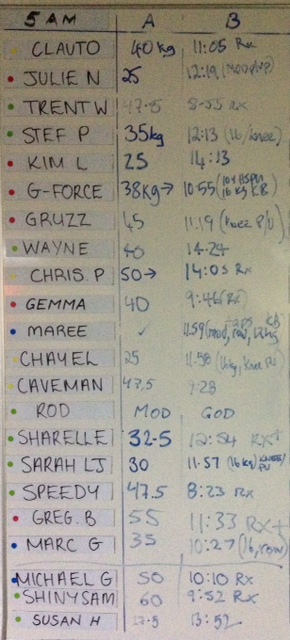 5 AM A B
CLAUTO 40kg 11:05 Rx
JULIE N 25 12:19
TRENT W 47.5 8:55 Rx
STEF P 35kg 12:13 (16/knee)
KIM L 25 14:13
G-FORCE 38kg→ 10:55 16 KG KB
GRUZZ 45 11:19 (knee P/U)
WAYNE 40 14.24
CHRIS. P 50→ 14:03 Rx
GEMMA 40 9:46 (Rx)
MAREE ✓ 11.59 (mod, row, 12kg KB
CHAYEL 25 11.58
CAVEMAN 47.5 9:28
ROD MOD GOD
SHARELLE 32.5 12:54 RX+
SARAH LJ 30 11.57 (16kg) KNEE/PU
SPEEDY 47.5 8:23 Rx
GREG. B 55 11:33 RX+
MARC G 35 10:27 (16, row)
MICHAEL G 50 10:10 Rx
SHINYSAM 60 9:52 Rx
SUSAN H 13:52